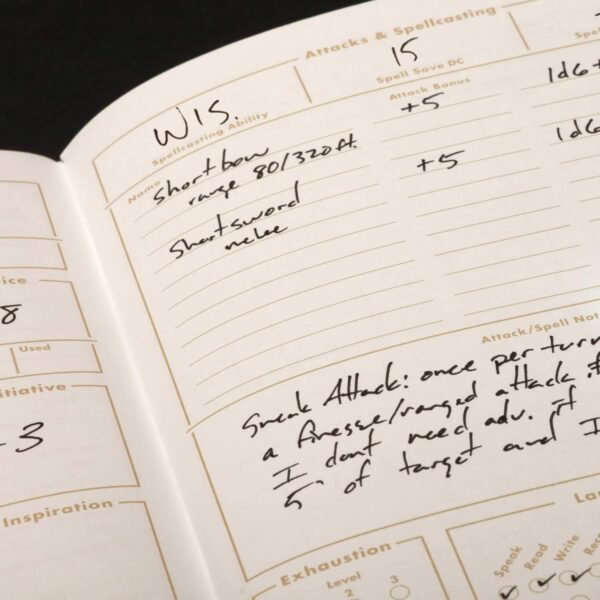 Attacks & Spellcasting
WIS.
15
Spellcasting Ability
Spell Save DC
Name
Attack Bonus
shortbow
+5
1d6+
range 80/320ft.
shortsword
+5
1d6
melee
Attack/Spell Not
Sneak Attack: once per turn
a finesse/ranged attack if
I dont need adv. if
5' of target and I
8
Used
-3
Inspiration
Exhaustion
Level
2
3
Speak
Read
Write